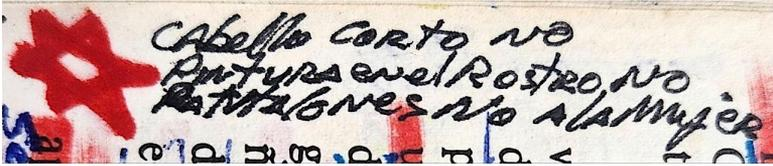 cabello corto no
Pintura en el Rostro, no
Pantalones no a la Mujer